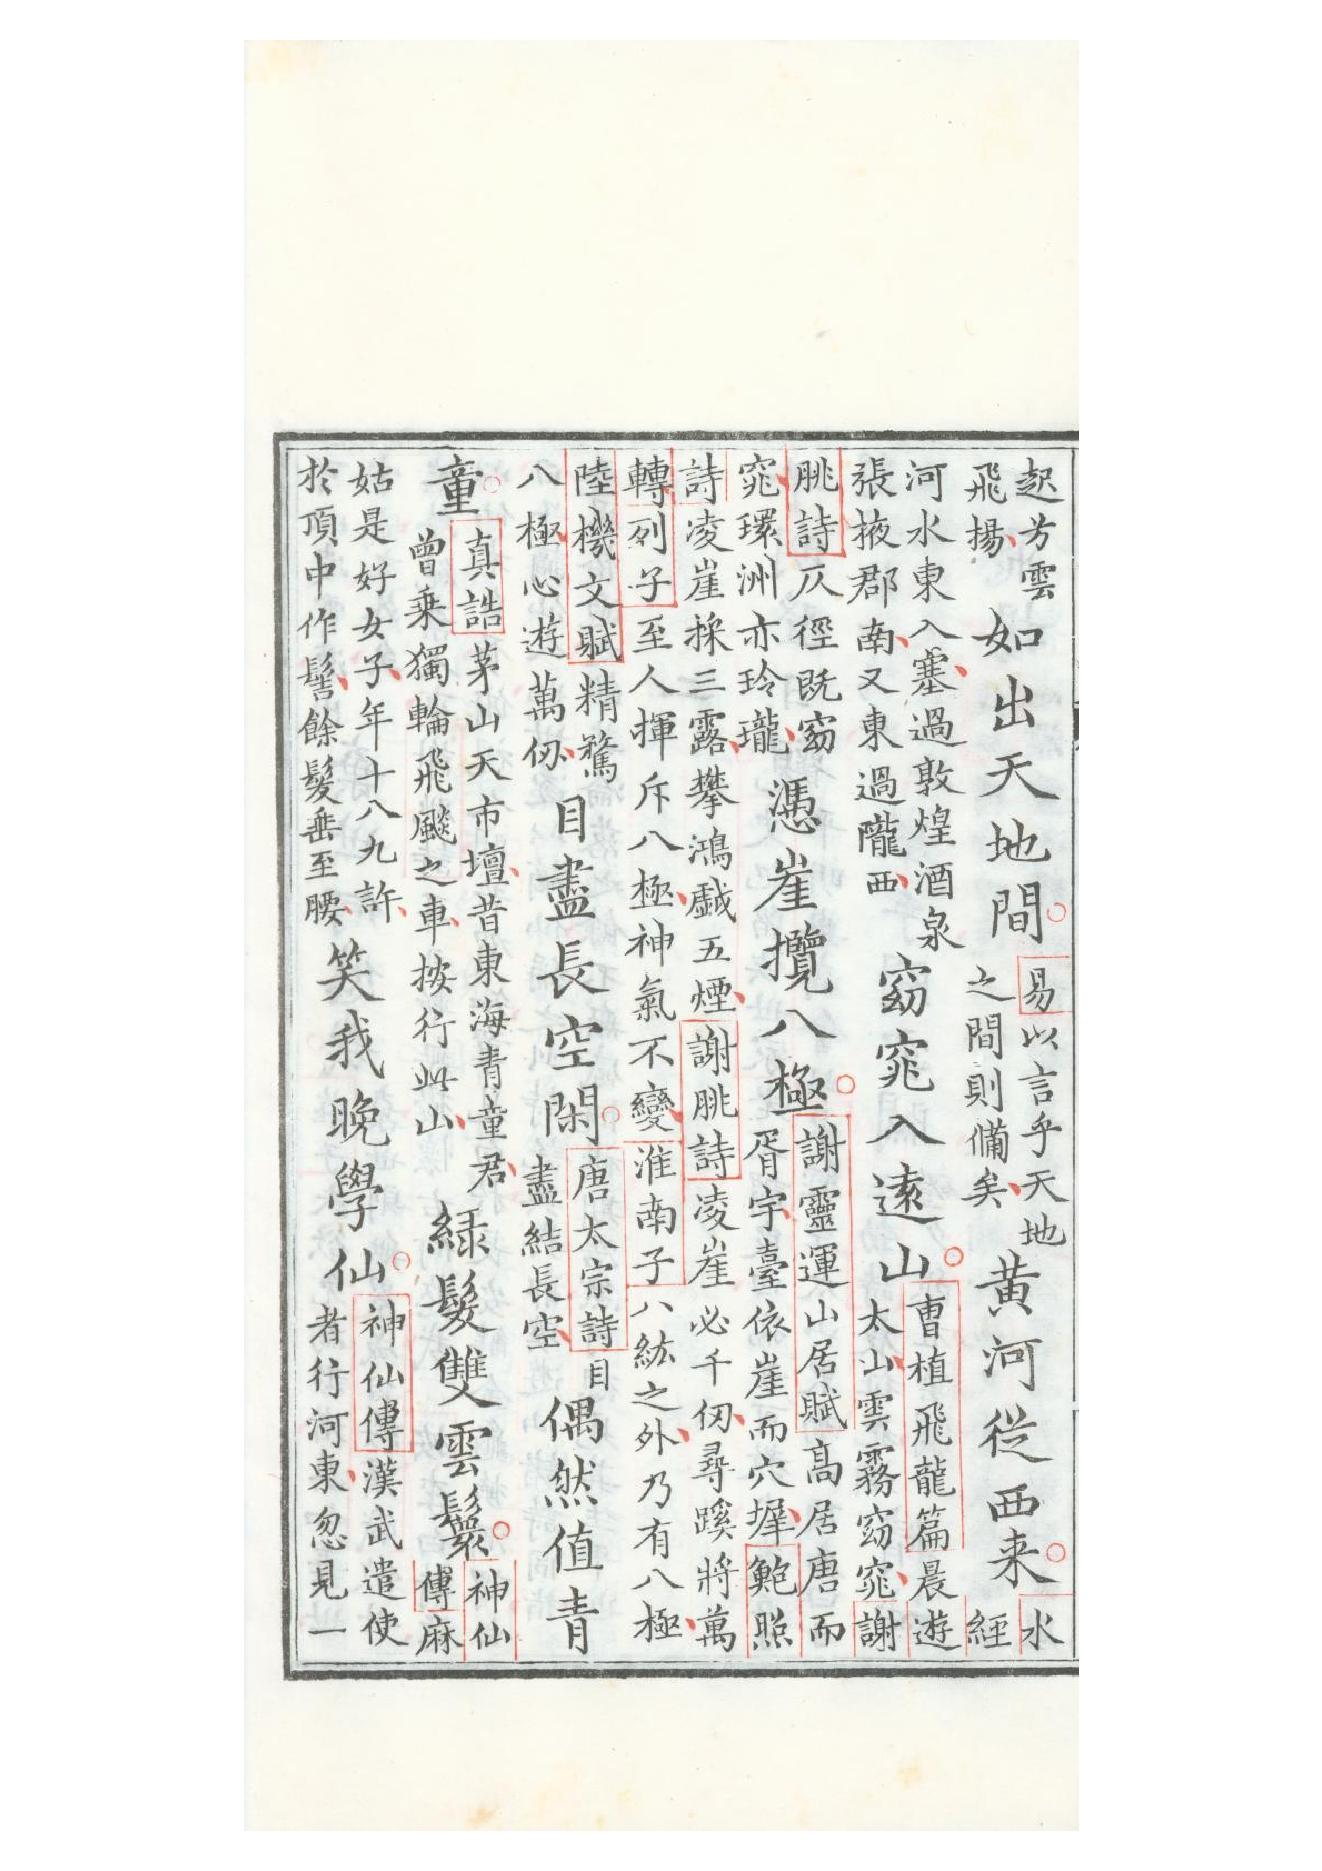 起方雲
飛揚
如出天地間
易以言乎天地
之間則備矣
黄河從西来
水
經
河水東入塞過敦煌酒泉
張掖郡南又東過隴西
窈窕入遠山
曹植飛龍篇晨遊
太山雲霧窈窕謝
脁詩仄徑既窈
窕環洲亦玲瓏
憑崖攬八極
謝靈運山居賦髙居唐而
胥宇臺依崖而穴墀鮑照
詩凌崖採三露攀鴻戲五煙謝脁詩凌崖必千仞尋蹊將萬
轉列子至人揮斥八極神氣不變淮南子八紘之外乃有八極
陸機文賦精騖
八極心遊萬仞
目盡長空閑
唐太宗詩目
盡結長空
偶然值青
童
真誥茅山天市壇昔東海青童君
曾乗獨輪飛飈之車按行此山
緑髮雙雲鬟
神仙
傳麻
姑是好女子年十八九許
於頂中作髻餘髮垂至腰
笑我晚學仙
神仙傳漢武遣使
者行河東忽見一